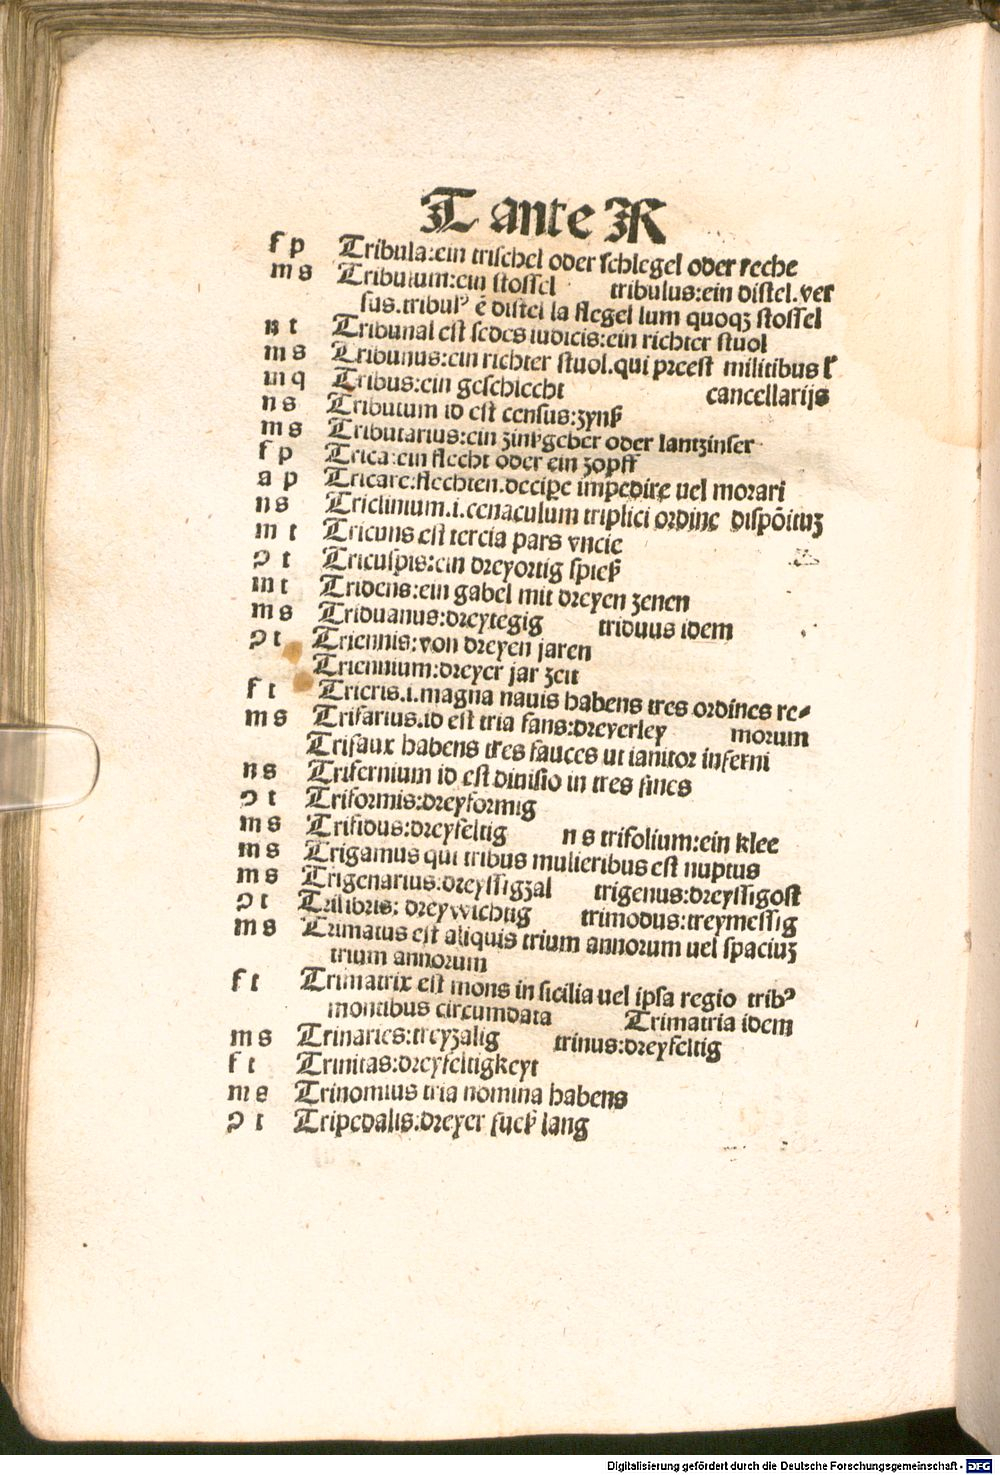 T ante R
f p Tribula:ein trischel oder schlegel oder reche
m s Tribulum:ein stossel tribulus:ein distel.ver
sus.tribulꝰ ē distel la flegel lum quoqꝫ stossel
n t Tribunal est sedes iudicis:ein richter stuol
m s Tribunus:ein richter stuol.qui preest militibus ł
m q Tribus:ein geschlecht cancellarijs
n s Tributum id est census:zynß
m s Tributarius:ein zinßgeber oder lantzinser
f p Trica:ein flecht oder ein zopff
a p Tricare:flechten.decipe impedire uel morari
n s Triclinium.i.cenaculum triplici ordine dispōituꝫ
m t Tricuns est tercia pars vncie
ↄ t Tricuspis:ein dreyortig spieß
m t Tridens:ein gabel mit dreyen zenen
m s Triduanus:dreytegig triduus idem
ↄ t Triennis:von dreyen jaren
Triennium:dreyer jar zeit
f t Trieris.i.magna nauis habens tres ordines re-
m s Trifarius.id est tria fans:dreyerley morum
Trifaux habens tres fauces ut ianitor inferni
n s Trifernium id est diuisio in tres fines
ↄ t Triformis:dreyformig
m s Trifidus:dreyfeltig n s trifolium:ein klee
m s Trigamus qui tribus mulieribus est nuptus
m s Trigenarius:dreyssigzal trigenus:dreyssigost
ↄ t Trilibris: dreywichtig trimodus:treymessig
m s Trimatus est aliquis trium annorum uel spaciuꝫ
trium annorum
f t Trimatrix est mons in sicilia uel ipsa regio tribꝰ
montibus circumdata Trimatria idem
m s Trinaries:treyzalig trinus:dreyfeltig
f t Trinitas:dreyfeltigkeyt
m s Trinomius tria nomina habens
ↄ t Tripedalis:dreyer fueß lang
Digitalisierung gefördert durch die Deutsche Forschungsgemeinschaft - DFG